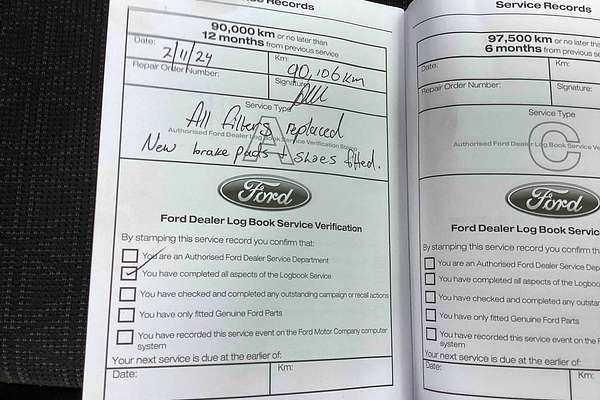 Service Records
90,000 km or no later than
12 months from previous service
Date: 2/11/24
Km: 90,106 km
Repair Order Number:
Signature
Service Type
A
All filters replaced
Authorised Ford Dealer Log Book Service Verification Stamp
New brake pads + shoes fitted.
Ford
Ford Dealer Log Book Service Verification
By stamping this service record you confirm that:
You are an Authorised Ford Dealer Service Department
You have completed all aspects of the Logbook Service
You have checked and completed any outstanding campaign or recall actions
You have only fitted Genuine Ford Parts
You have recorded this service event on the Ford Motor Company computer
system
Your next service is due at the earlier of:
Date:
Km:
Service Records
97,500 km or no later than
6 months from previous service
Date:
Km:
Repair Order Number:
Signature:
Service Type
C
Authorised Ford Dealer Log Book Service Verification
Ford
Ford Dealer Log Book Servic
By stamping this service record you confirm th
You are an Authorised Ford Dealer Service Dep
You have completed all aspects of the Logboo
You have checked and completed any outstan
You have only fitted Genuine Ford Parts
You have recorded this service event on the F
system
Your next service is due at the earlier of:
Date:
Km: